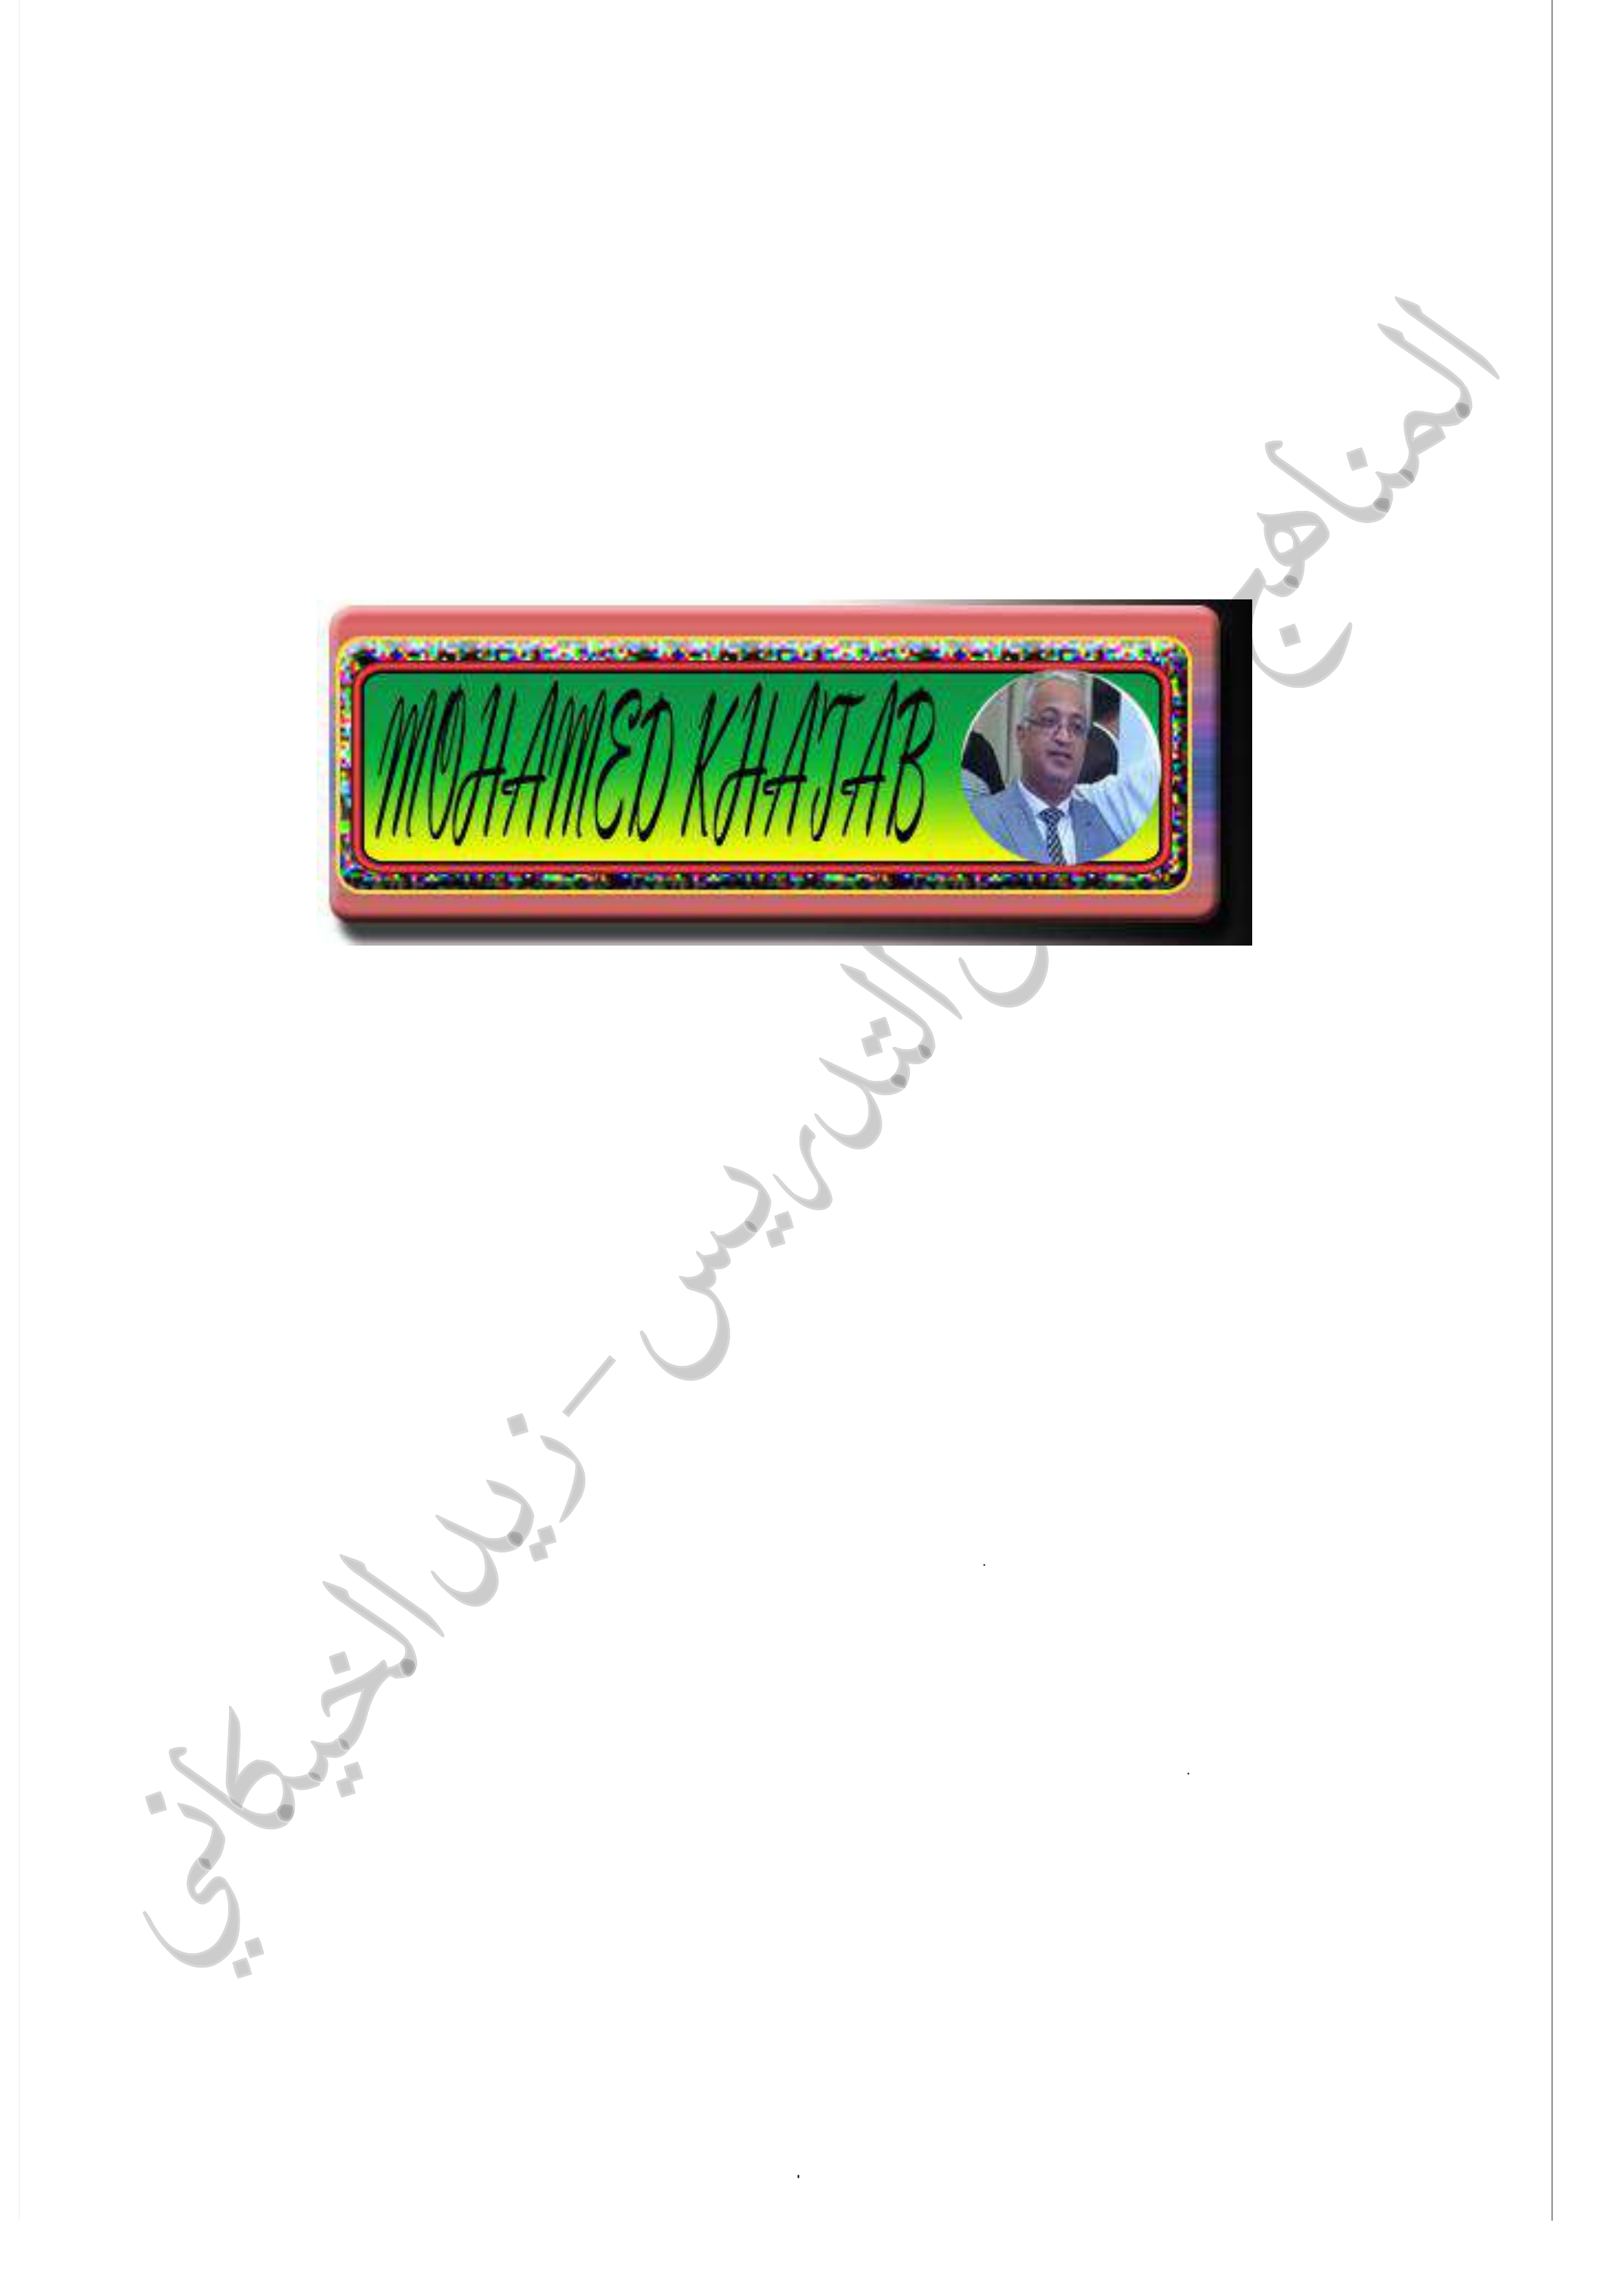 MOHAMED KHATAB
المناهج
التدريس – زيد الخيكاني